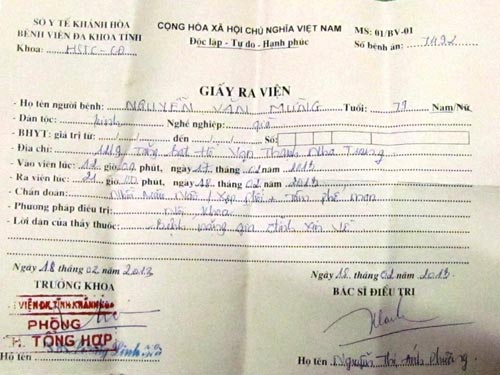 SỞ Y TẾ KHÁNH HÒA
BỆNH VIỆN ĐA KHOA TỈNH
Khoa: HSTC - CĐ
CỘNG HÒA XÃ HỘI CHỦ NGHĨA VIỆT NAM
Độc lập - Tự do - Hạnh phúc
MS: 01/BV-01
Số bệnh án: 7492
GIẤY RA VIỆN
- Họ tên người bệnh: NGUYỄN VĂN MỪNG Tuổi: 79 Nam/Nữ
- Dân tộc: kinh Nghề nghiệp: già
- BHYT: giá trị từ / / đến / / Số:
- Địa chỉ: Tăng Bạt Hổ Vạn Thạnh Nha Trang
- Vào viện lúc: 12 giờ 00 phút, ngày 17 tháng 02 năm
- Ra viện lúc: 21 giờ 00 phút, ngày 18 tháng 02 năm 2013
- Chẩn đoán: Nhồi máu não / + Tâm phế mạn
- Phương pháp điều trị: Nội khoa
- Lời dặn của thầy thuốc: Bệnh nặng gia đình xin về
Ngày 18 tháng 02 năm 2013
TRƯỞNG KHOA
VIỆN ĐK TỈNH KHÁNH HÒA
PHÒNG
H. TỔNG HỢP
Họ tên
Ngày 18 tháng 02 năm 2013
BÁC SĨ ĐIỀU TRỊ
Họ tên Nguyễn Thị Ánh Phượng